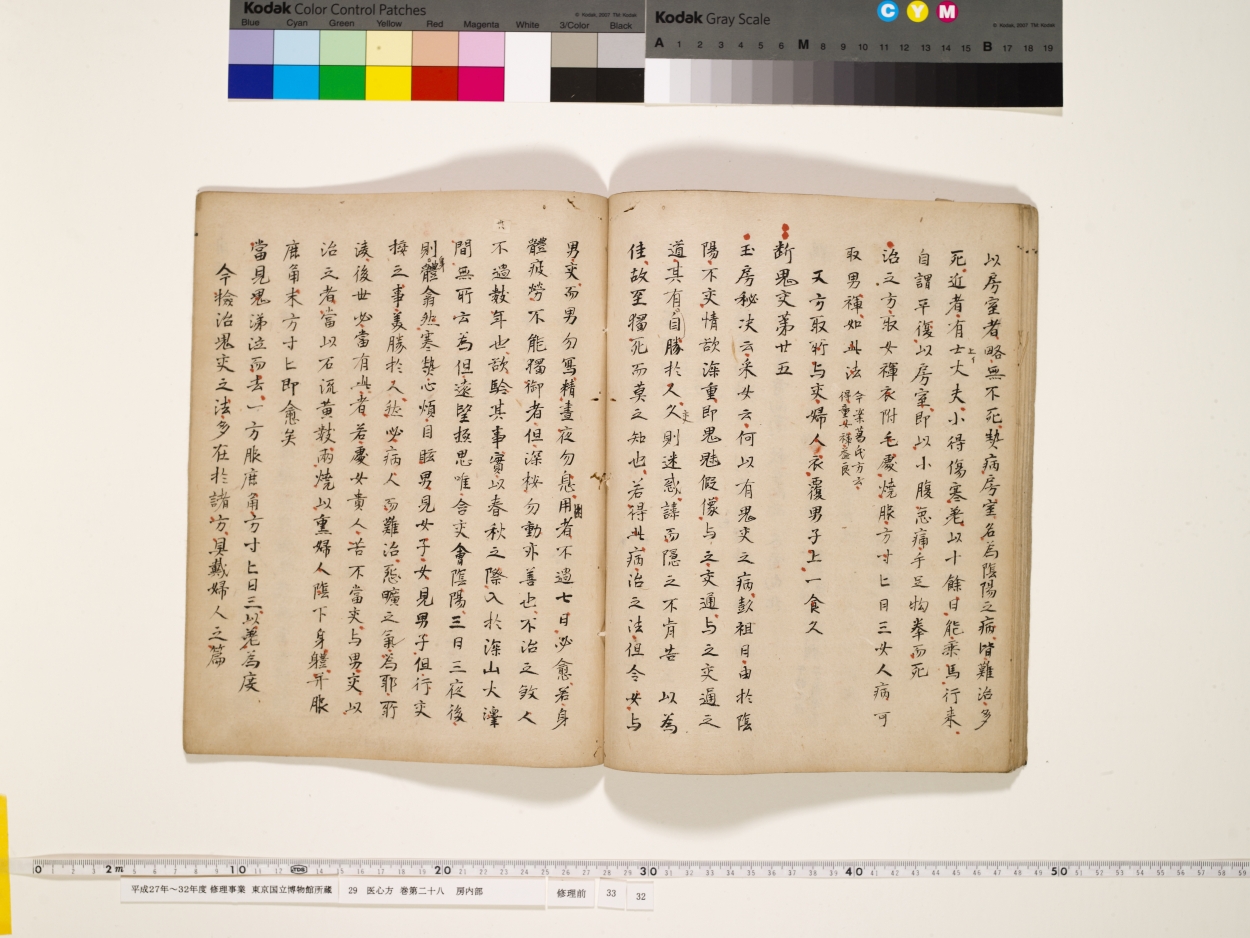 Kodak Color Control Patches
© Kodak, 2007 TM: Kodak
Blue Cyan Green Yellow Red Magenta White 3/Color Black
Kodak Gray Scale
C Y M
© Kodak, 2007 TM: Kodak
A 1 2 3 4 5 6 M 8 9 10 11 12 13 14 15 B 17 18 19
以房室者略無不死熱病房室名為陰陽之病皆難治多
死近者有士大夫小得傷寒差以十餘日能乘馬行来
自謂平復以房室即以小腹急痛手足拘拳而死
治之方取女褌衣附毛處燒服方寸匕日三女人病可
取男褌如此法
今案葛氏方云
得童女褌益良
又方取所与交婦人衣覆男子上一食久
断鬼交第廿五
玉房秘决云采女云何以有鬼交之病彭祖曰由於陰
陽不交情欲深重即鬼魅假像与之交通与之交通之
道其有自勝於人久則迷惑諱而隱之不肯告 以為
佳故至獨死而莫之知也若得此病治之法但令女与
男交而男勿寫精晝夜勿息用者不過七日必愈若身
體疲勞不能獨御者但深按勿動亦善也不治之煞人
不過數年也欲驗其事實以春秋之際入於深山大澤
間無所云為但遠望極思唯含交會陰陽三日三夜後
則體翕然寒熱心煩目眩男見女子女見男子但行交
接之事美勝於人然必病人而難治怨曠之氣為耶所
淩後世必當有此者若處女貴人苦不當交与男交以
治之者當以石流黄數兩燒以熏婦人陰下身體并服
鹿角末方寸匕即愈矣
當見鬼涕泣而去一方服鹿角方寸匕日三以差為度
今檢治鬼交之法多在於諸方具載婦人之篇
0 2m 10 20 30 40 50
平成27年～32年度 修理事業 東京国立博物館所蔵
29 医心方 巻第二十八 房内部
修理前
33
32